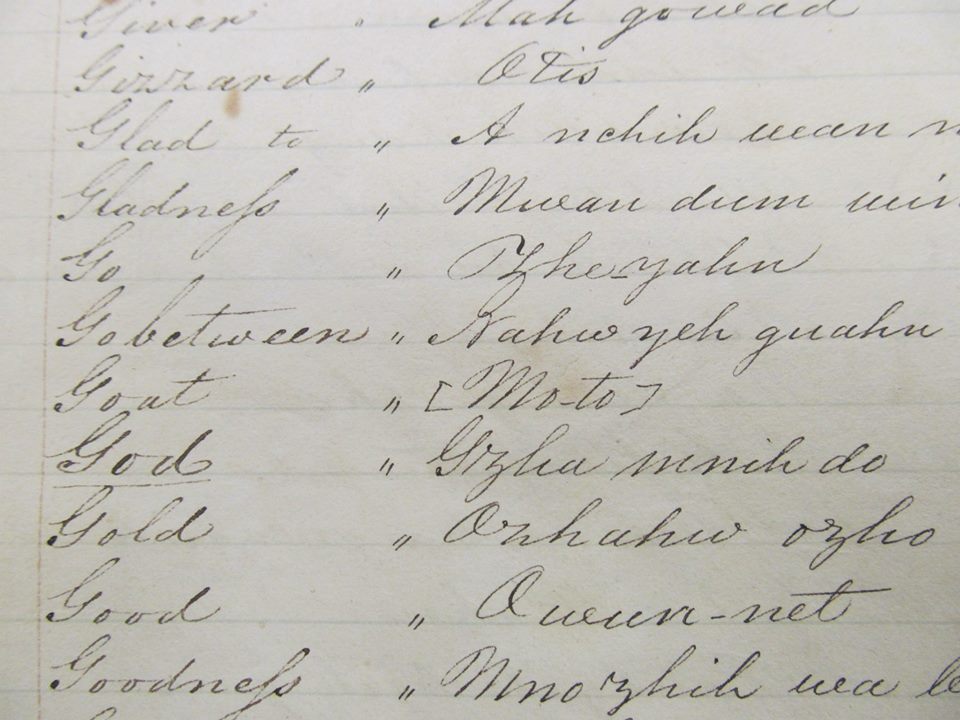 Giver " Mah gowad
Gizzard " Otis
Glad to " A nchih wan
Gladness " Mwan dum win
Go " Zhe-yahn
Go between " Nahw yeh guahn
Goat " [Mo-to]
God " Gzha mnih do
Gold " Ozhahw ozho
Good " O wun-net
Goodness " Mno zhih wa